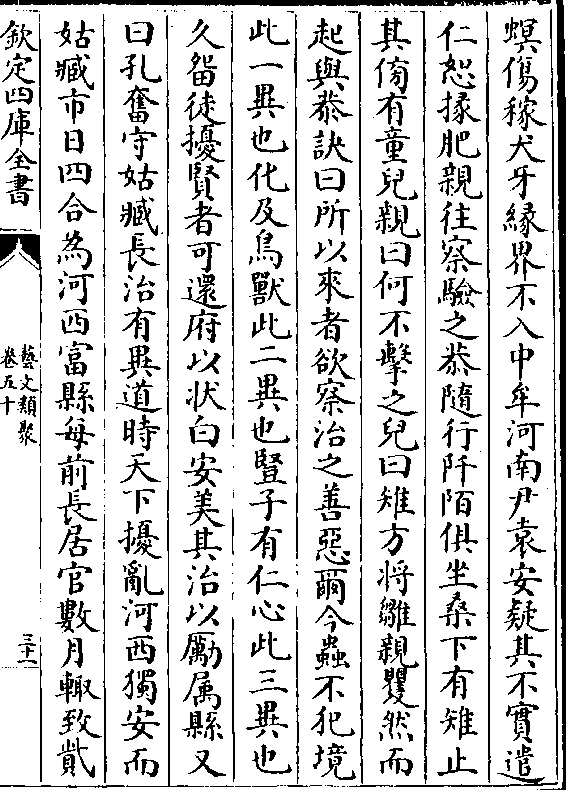 螟傷稼犬牙縁界不入中牟河南尹袁安疑其不實遣
仁恕掾肥親往察驗之恭隨行阡陌俱坐桑下有雉止
其傍有童兒親曰何不擊之兒曰雉方将雛親瞿然而
起與恭訣曰所以來者欲察治之善惡爾今蟲不犯境
此一異也化及鳥獸此二異也豎子有仁心此三異也
久留徒擾賢者可還府以狀白安美其治以勵属縣又
曰孔奮守姑臧長治有異道時天下擾亂河西獨安而
姑臧市日四合為河西富縣每前長居官數月輙致貲
欽定四庫全書
藝文類聚
卷五十
三十一